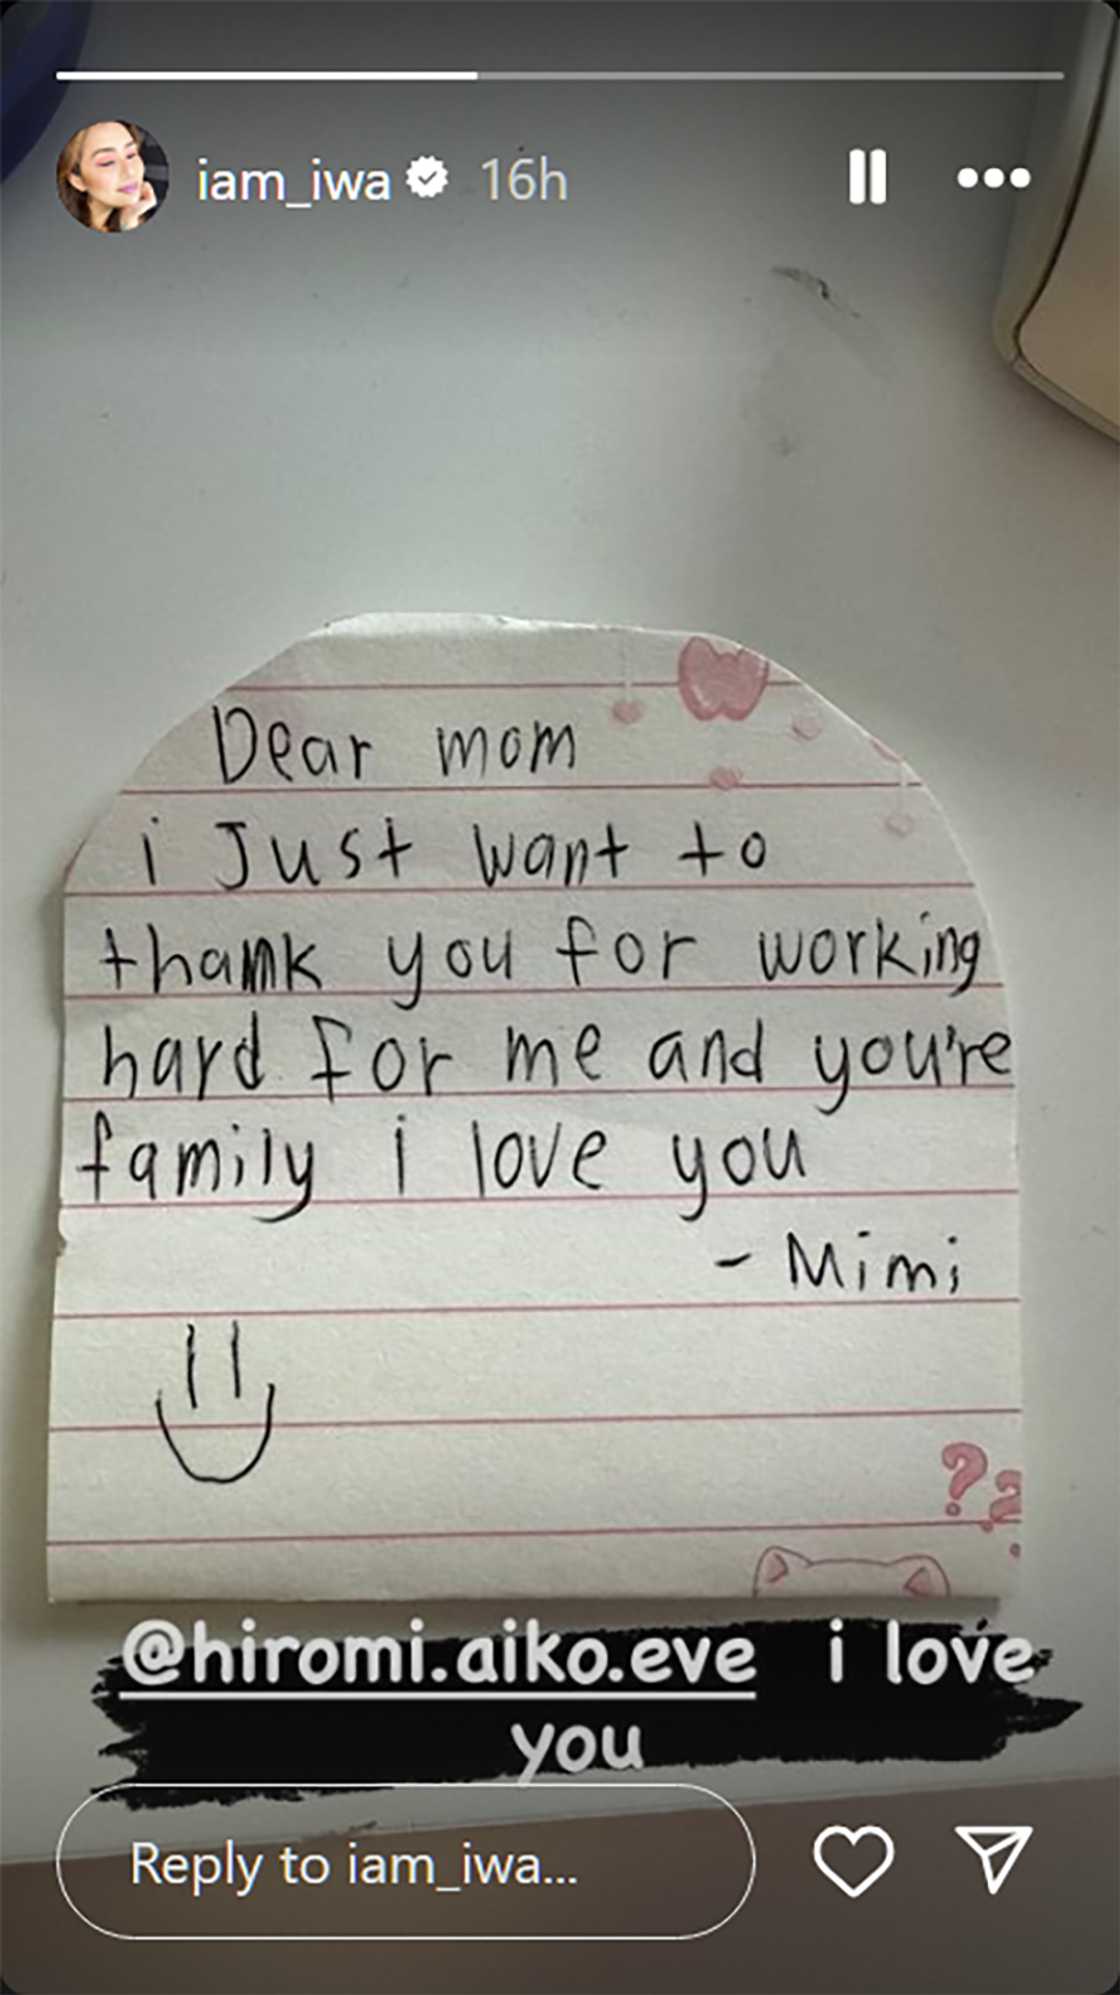 iam_iwa 16h
Dear mom
i Just want to
thank you for working
hard for me and you're
family i love you
- Mimi
??
@hiromi.aiko.eve i love
you
Reply to iam_iwa...